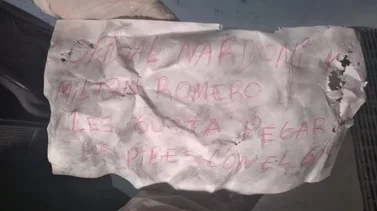 OFICIAL NARDONI y
MILTON ROMERO
LES GUSTA PEGAR
PIBES CON EL